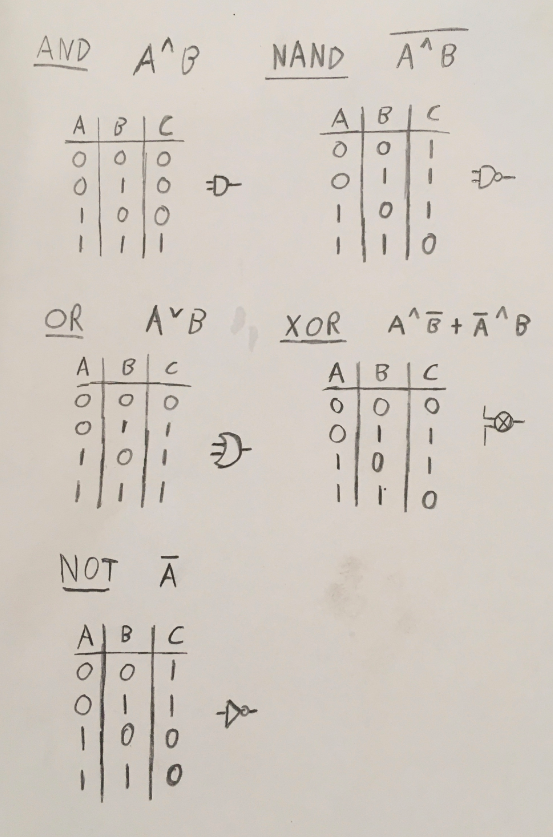 AND A^B
A B C
0 0 0
0 1 0
1 0 0
1 1 1
NAND A̅^̅B̅
A B C
0 0 1
0 1 1
1 0 1
1 1 0
OR A˅B
A B C
0 0 0
0 1 1
1 0 1
1 1 1
XOR A^B̅ + A̅^B
A B C
0 0 0
0 1 1
1 0 1
1 1 0
NOT A̅
A B C
0 0 1
0 1 1
1 0 0
1 1 0